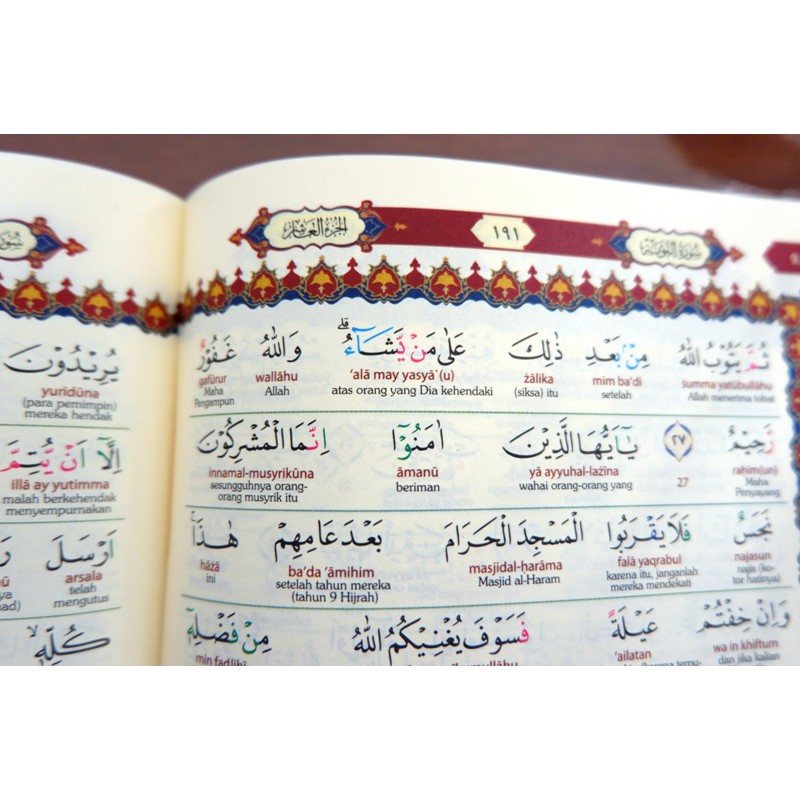 الجزء العاشر
١٩١
سورة التوبة
ثُمَّ يَتُوْبُ اللّٰهُ مِنْۢ بَعْدِ ذٰلِكَ عَلٰى مَنْ يَّشَاۤءُۗ وَاللّٰهُ غَفُوْرٌ
ṡumma yatūbullāhu mim ba'di żālika 'alā may yasyā`(u) wallāhu gafūrur
Allah menerima tobat setelah (siksa) itu atas orang yang Dia kehendaki Allah Maha Pengampun
رَّحِيْمٌ ٢٧ يٰٓاَيُّهَا الَّذِيْنَ اٰمَنُوْٓا اِنَّمَا الْمُشْرِكُوْنَ
raḥīm(un) 27 yā ayyuhal-lażīna āmanū innamal-musyrikūna
Maha Penyayang wahai orang-orang yang beriman sesungguhnya orang-orang musyrik itu
نَجَسٌ فَلَا يَقْرَبُوا الْمَسْجِدَ الْحَرَامَ بَعْدَ عَامِهِمْ هٰذَاۚ
najasun falā yaqrabul masjidal-ḥarāma ba'da 'āmihim hāżā
najis (kotor hatinya) karena itu, janganlah mereka mendekati Masjid al-Haram setelah tahun mereka (tahun 9 Hijrah) ini
وَاِنْ خِفْتُمْ عَيْلَةً فَسَوْفَ يُغْنِيْكُمُ اللّٰهُ مِنْ فَضْلِهٖٓ
wa in khiftum 'ailatan min faḍlihī
dan jika kalian
يُرِيْدُوْنَ
yurīdūna
(para pemimpin) mereka hendak
اِلَّآ اَنْ يُّتِمَّ
illā ay yutimma
malah berkehendak menyempurnakan
اَرْسَلَ
arsala
telah mengutus
كُلِّهٖۙ